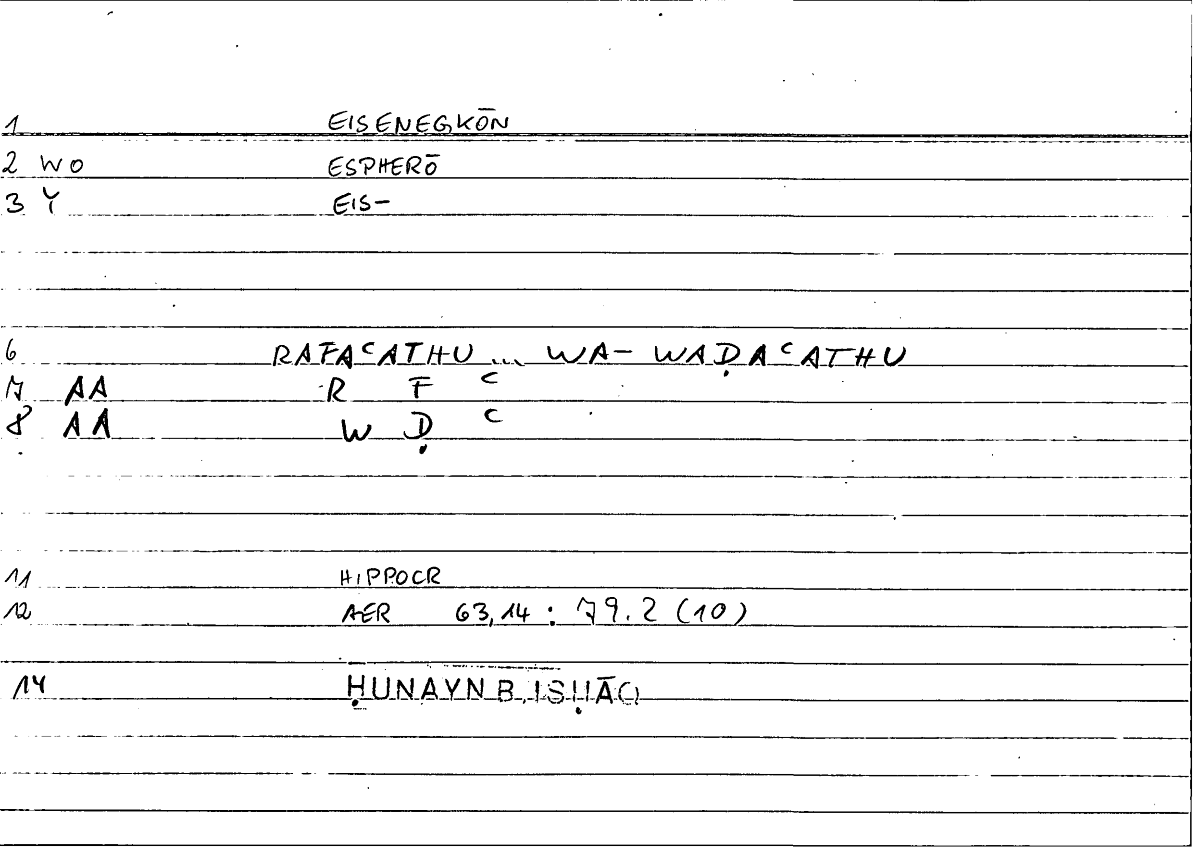 1 EISENEGKŌN
2 WO ESPHERŌ
3 Y EIS-
6 RAFAᶜATHU ... WA- WAḌAᶜATHU
7 AA R F ᶜ
8 AA W Ḍ ᶜ
11 HIPPOCR
12 AER 63,14 : 79.2 (10)
14 ḤUNAYN B. ISḤĀQ